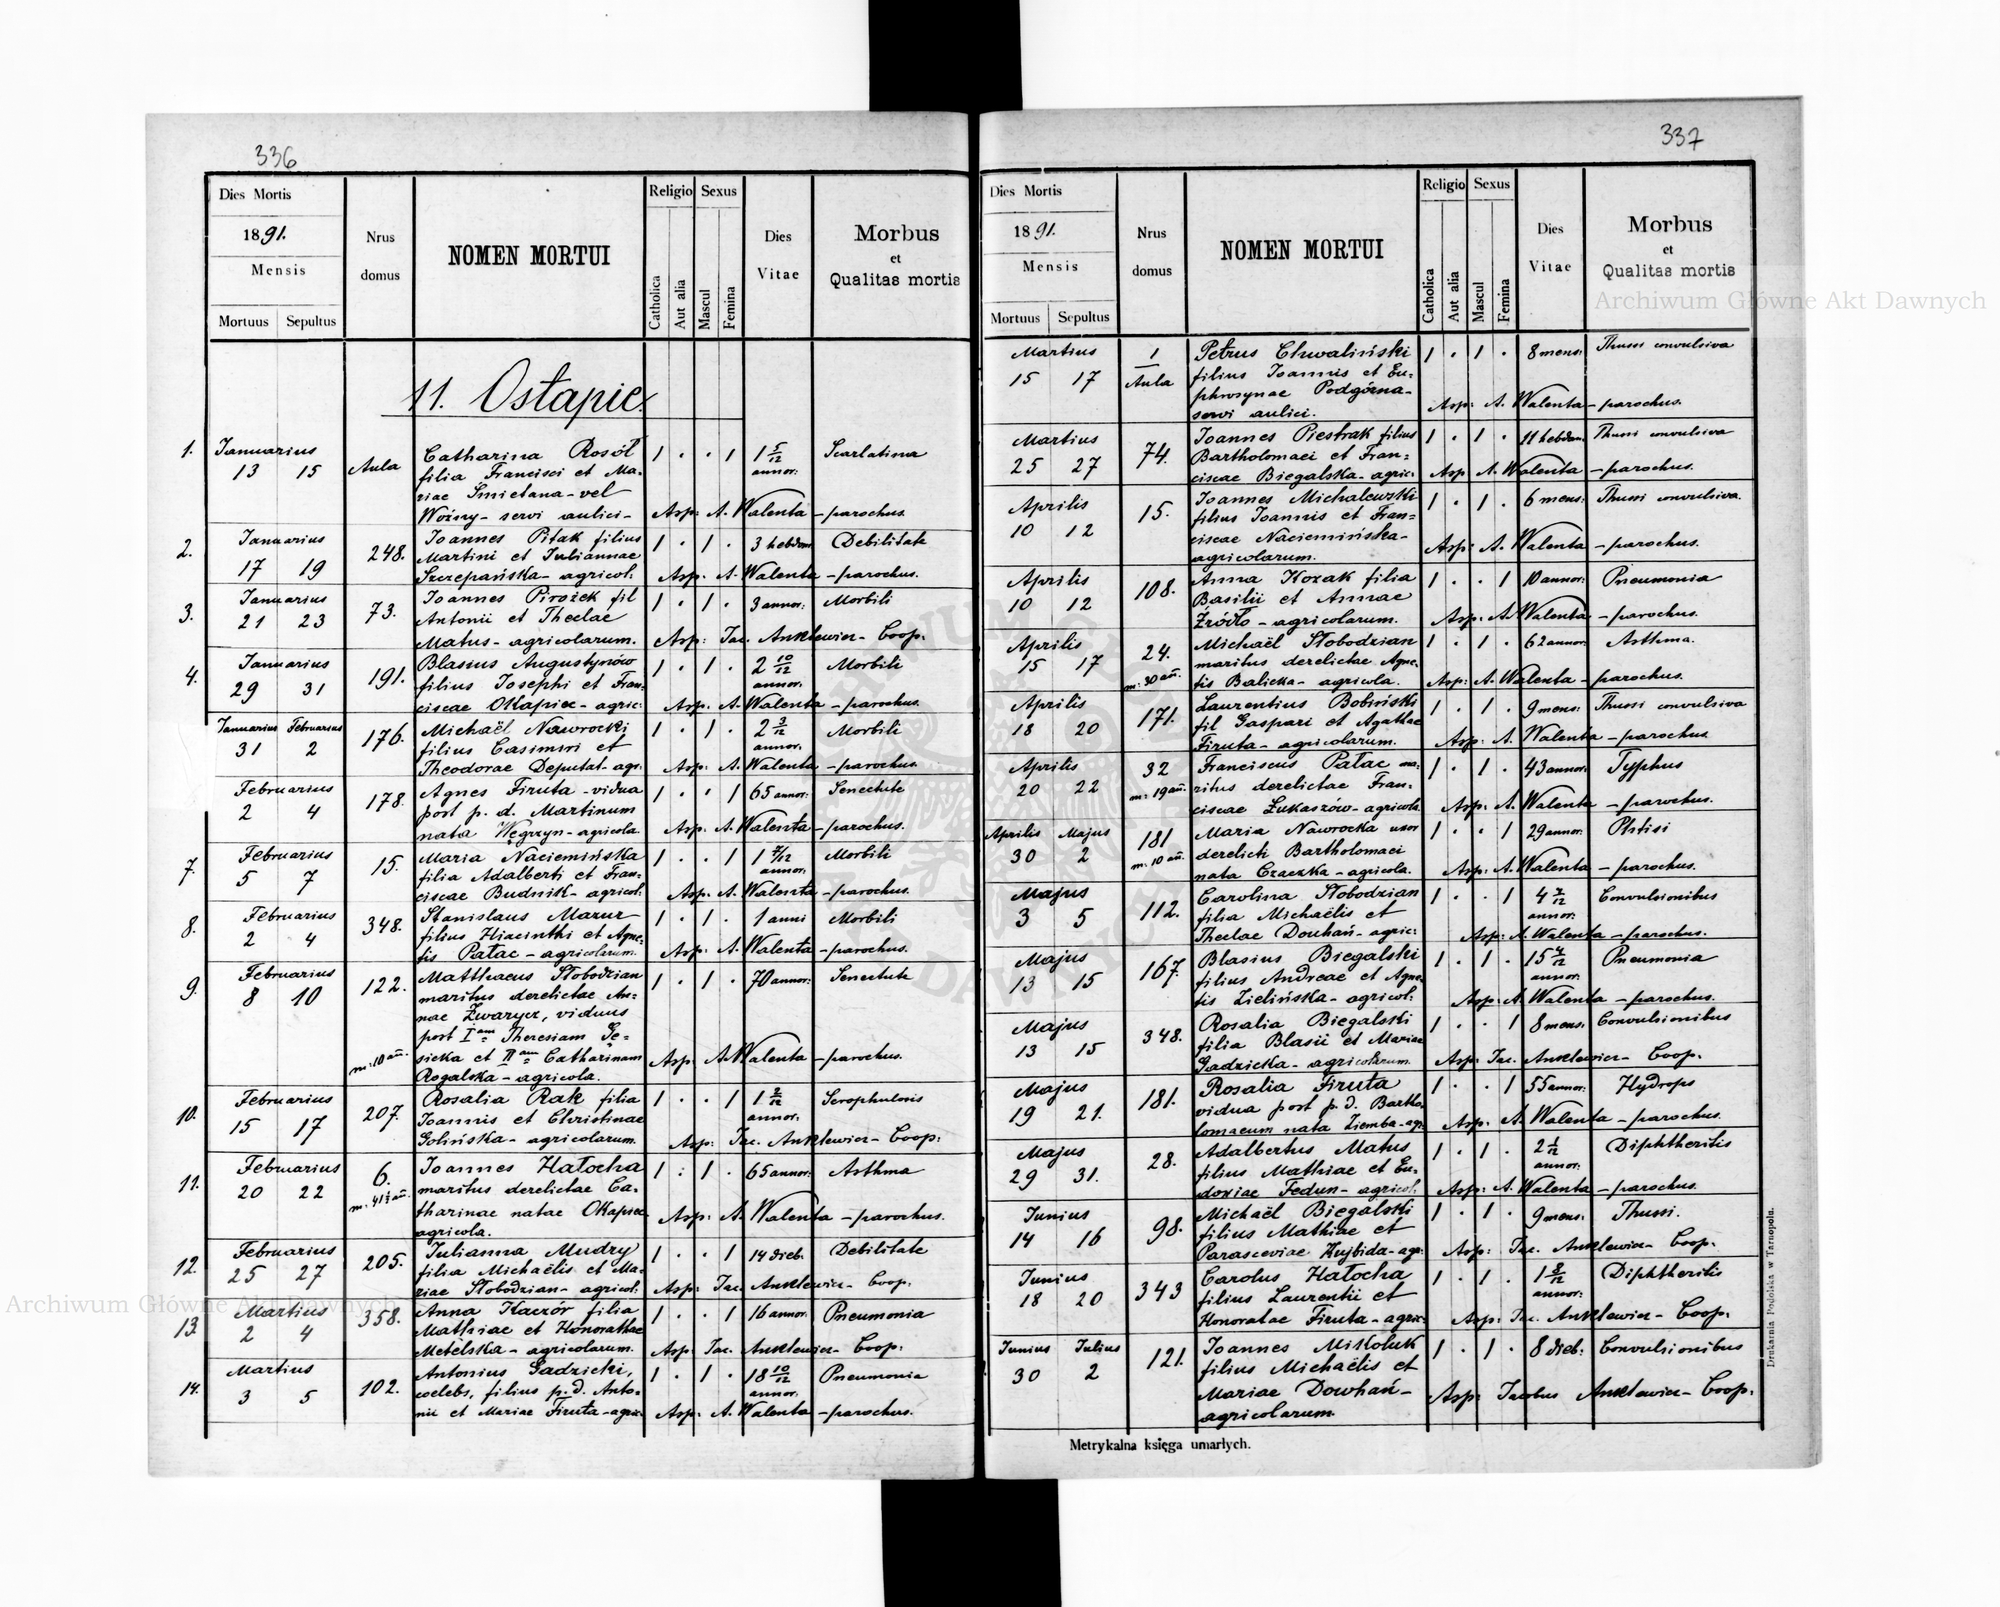 336
Dies Mortis
1891.
Mensis
Mortuus Sepultus
Nrus domus
NOMEN MORTUI
Religio
Catholica
Aut alia
Sexus
Mascul
Femina
Dies Vitae
Morbus
et
Qualitas mortis
11. Ostapie.
1. Januarius
13 15 Aula
Catharina Rosół
filia Francisci et Ma=
riae Śmietana - vel
Woźny - servi aulici -
1 . . 1 1 5/12 annor: Scarlatina
Asp: A. Walenta - parochus.
2. Januarius
17 19 248.
Joannes Ptak filius
Martini et Juliannae
Szczepańska - agricol:
1 . 1 . 3 hebdom Debilitate
Asp: A. Walenta - parochus.
3. Januarius
21 23 73.
Joannes Pirożek fil
Antonii et Theclae
Matus - agricolarum.
1 . 1 . 3 annor: Morbili
Asp: Jac. Anklewicz - Coop:
4. Januarius
29 31 191.
Blasius Augustynów
filius Josephi et Fran=
ciscae Okapiec - agric:
1 . 1 . 2 10/12 annor: Morbili
Asp: A. Walenta - parochus.
Januarius Februarius
31 2 176.
Michaël Nawrocki
filius Casimiri et
Theodorae Deputat - agr:
1 . 1 . 2 3/12 annor. Morbili
Asp: A. Walenta - parochus.
Februarius
2 4 178.
Agnes Firuta - vidua
post p. d. Martinum
nata Węgrzyn - agricola
1 . . 1 65 annor: Senectute
Asp: A. Walenta - parochus.
7. Februarius
5 7 15.
Maria Naciemińska
filia Adalberti et Fran=
ciscae Budnik - agricol:
1 . . 1 1 7/12 annor: Morbili
Asp: A. Walenta - parochus.
8. Februarius
2 4 348.
Stanislaus Mazur
filius Hiacinthi et Agne=
tis Pałac - agricolarum.
1 . 1 . 1 anni Morbili
Asp: A. Walenta - parochus.
9. Februarius
8 10 122.
m: 10 añ.
Matthaeus Słobodzian
maritus derelictae An=
nae Zwarycz, viduus
post Iam Theresiam Gę=
sicka et IIam Catharinam
Rogalska - agricola.
1 . 1 . 70 annor: Senectute
Asp: A. Walenta - parochus.
10. Februarius
15 17 207.
Rosalia Rak filia
Joannis et Christinae
Golińska - agricolarum.
1 . . 1 1 2/12 annor: Scrophulosis
Asp: Jac. Anklewicz - Coop:
11. Februarius
20 22 6.
m: 41½ añ.
Joannes Hałocha
maritus derelictae Ca=
tharinae natae Okapiec
agricola.
1 . 1 . 65 annor: Asthma
Asp: A. Walenta - parochus.
12. Februarius
25 27 205.
Julianna Mudry
filia Michaëlis et Ma=
riae Słobodzian - agricol:
1 . . 1 14 dieb. Debilitate
Asp: Jac. Anklewicz - Coop.
13. Martius
2 4 358.
Anna Kaczór filia
Mathiae et Honorathae
Metelska - agricolarum.
1 . . 1 16 annor. Pneumonia
Asp: Jac. Anklewicz - Coop:
14. Martius
3 5 102.
Antonius Gadzicki,
coelebs, filius p. d. Anto=
nii et Mariae Firuta - agric:
1 . 1 . 18 10/12 annor. Pneumonia
Asp: A. Walenta - parochus.
337
Dies Mortis
1891.
Mensis
Mortuus Sepultus
Nrus domus
NOMEN MORTUI
Religio
Catholica
Aut alia
Sexus
Mascul
Femina
Dies Vitae
Morbus
et
Qualitas mortis
Martius
15 17 1 Aula
Petrus Chwaliński
filius Joannis et Eu=
phrosynae Podgórna -
servi aulici.
1 . 1 . 8 mens: Thussi convulsiva
Asp: A. Walenta - parochus.
Martius
25 27 74.
Joannes Piestrak filius
Bartholomaei et Fran=
ciscae Biegalska - agric:
1 . 1 . 11 hebdom. Thussi convulsiva
Asp: A. Walenta - parochus.
Aprilis
10 12 15.
Joannes Michalewski
filius Joannis et Fran=
ciscae Naciemińska -
agricolarum.
1 . 1 . 6 mens: Thussi convulsiva.
Asp: A. Walenta - parochus.
Aprilis
10 12 108.
Anna Kozak filia
Basilii et Annae
Źródło - agricolarum.
1 . . 1 10 annor: Pneumonia
Asp: A. Walenta - parochus.
Aprilis
15 17 24.
m: 30 añ.
Michaël Słobodzian
maritus derelictae Agne=
tis Balicka - agricola.
1 . 1 . 62 annor: Asthma.
Asp: A. Walenta - parochus.
Aprilis
18 20 171.
Laurentius Bobiński
fil Gaspari et Agathae
Firuta - agricolarum.
1 . 1 . 9 mens: Thussi convulsiva
Asp: A. Walenta - parochus
Aprilis
20 22 32
m: 19 añ.
Franciscus Pałac ma=
ritus derelictae Fran=
ciscae Łukaszów - agricola.
1 . 1 . 43 annor: Typhus
Asp: A. Walenta - parochus.
Aprilis Majus
30 2 181
m: 10 añ.
Maria Nawrocka uxor
derelicti Bartholomaei
nata Czaczka - agricola.
1 . . 1 29 annor: Phtisi
Asp: A. Walenta - parochus.
Majus
3 5 112.
Carolina Słobodzian
filia Michaëlis et
Theclae Douhań - agric:
1 . . 1 4 2/12 annor: Convulsionibus
Asp: A. Walenta - parochus.
Majus
13 15 167.
Blasius Biegalski
filius Andreae et Agne=
tis Zielińska - agricol:
1 . 1 . 15 4/12 annor: Pneumonia
Asp: A. Walenta - parochus.
Majus
13 15 348.
Rosalia Biegalski
filia Blasii et Mariae
Gadzicka - agricolarum.
1 . . 1 8 mens: Convulsionibus
Asp: Jac. Anklewicz - Coop.
Majus
19 21. 181.
Rosalia Firuta
vidua post p. d. Bartho=
lomaeum nata Ziemba - agr:
1 . . 1 55 annor: Hydrops
Asp: A. Walenta - parochus.
Majus
29 31. 28.
Adalbertus Matus
filius Mathiae et Eu=
doxiae Fedun - agricol:
1 . 1 . 2 1/12 annor: Diphtheritis
Asp: A. Walenta - parochus.
Junius
14 16 98.
Michaël Biegalski
filius Mathiae et
Parasceviae Kujbida - agr:
1 . 1 . 9 mens: Thussi.
Asp: Jac. Anklewicz - Coop.
Junius
18 20 343
Carolus Hałocha
filius Laurentii et
Honoratae Firuta - agric:
1 . 1 . 1 8/12 annor: Diphtheritis
Asp: Jac. Anklewicz - Coop:
Junius Julius
30 2 121.
Joannes Mikołuk
filius Michaëlis et
Mariae Dowhań -
agricolarum.
1 . 1 . 8 dieb: Convulsionibus
Asp: Jacobus Anklewicz - Coop:
Metrykalna księga umarłych.
Drukarnia Podolska w Tarnopolu.
Archiwum Główne Akt Dawnych
Archiwum Główne Akt Dawnych